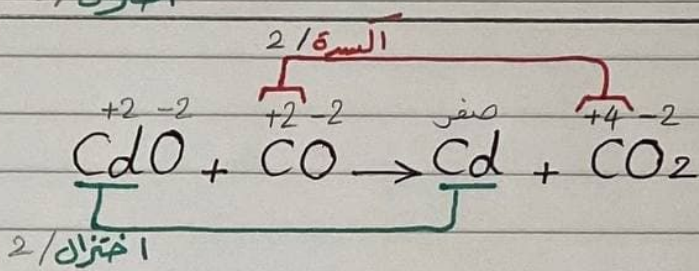 أكسدة / 2
+2 -2 +2 -2 صفر +4 -2
CdO + CO → Cd + CO2
اختزال / 2